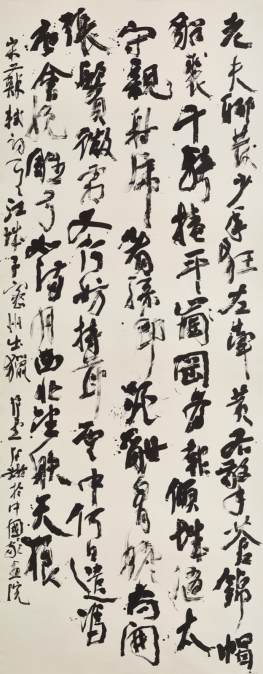 老夫聊發少年狂左牽黃右擎蒼錦帽
貂裘千騎捲平崗為報傾城隨太
守親射虎看孫郎酒酣胸膽尚開
張鬢微霜又何妨持節雲中何日遣馮
唐會挽雕弓如滿月西北望射天狼
宋人蘇軾詞江城子密州出獵於中國畫院